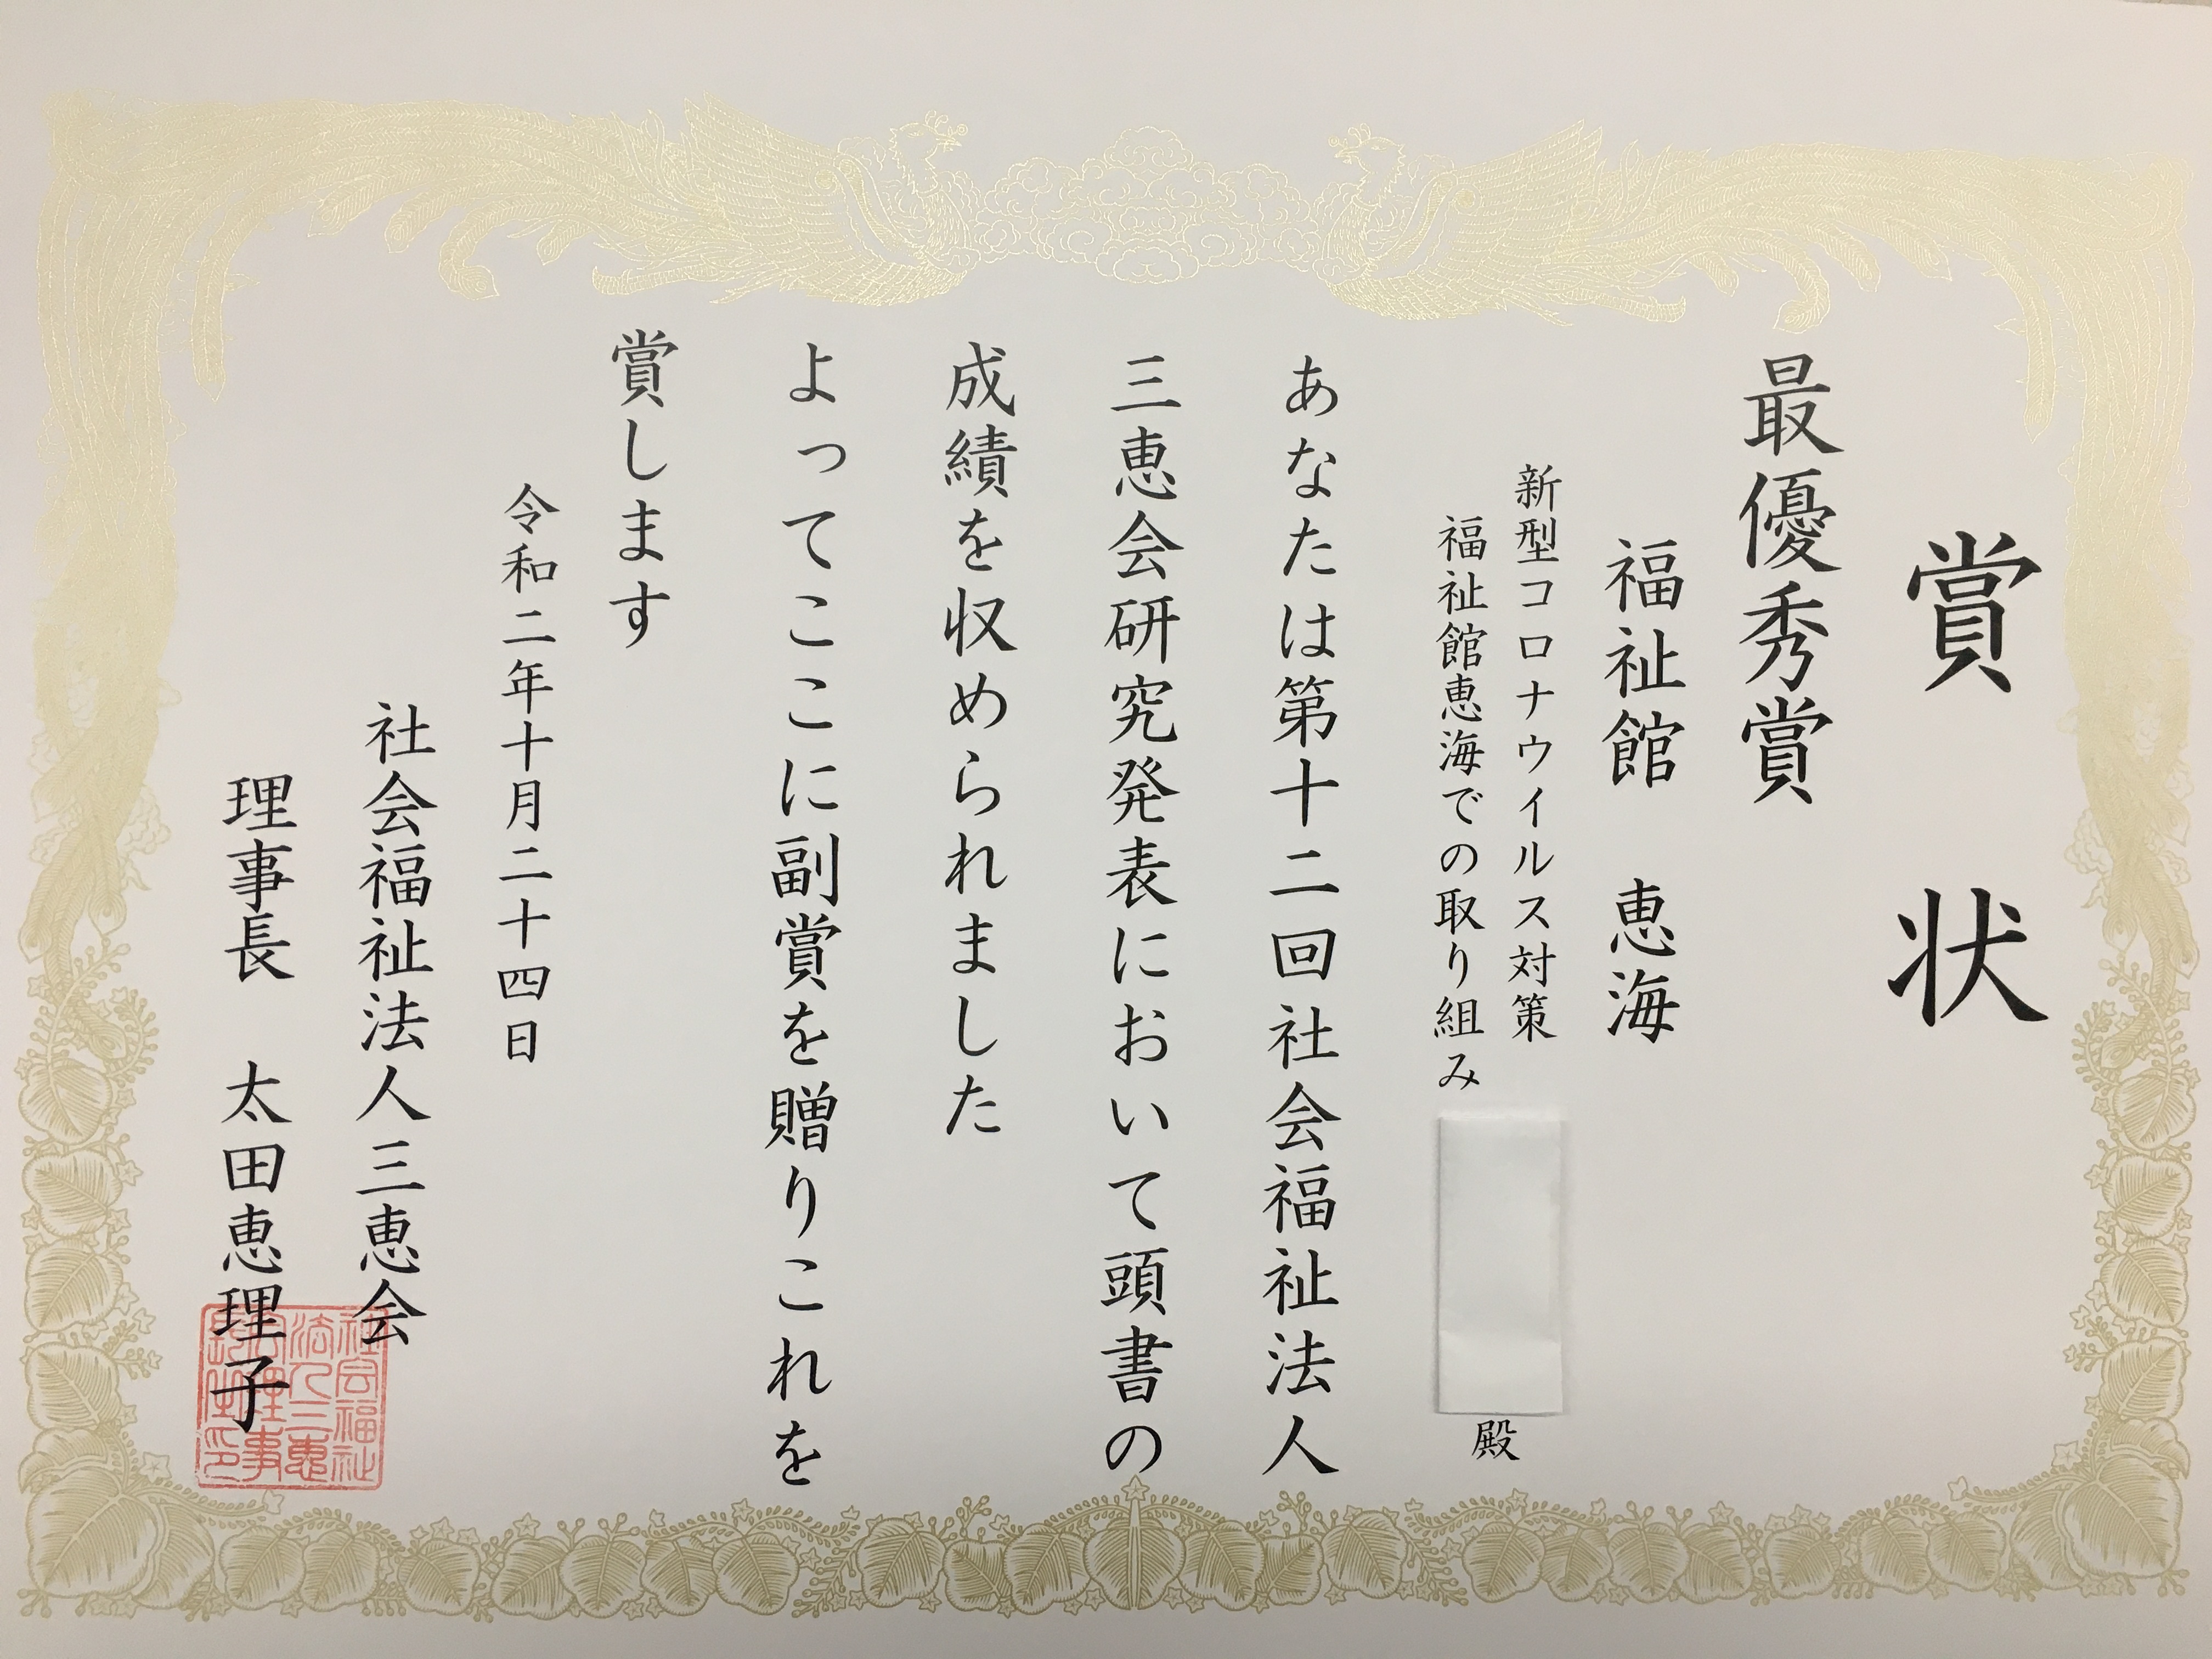 賞状
最優秀賞
福祉館 恵海
新型コロナウイルス対策
福祉館恵海での取り組み
殿
あなたは第十二回社会福祉法人
三恵会研究発表において頭書の
成績を収められました
よってここに副賞を贈りこれを
賞します
令和二年十月二十四日
社会福祉法人三恵会
理事長 太田恵理子
社会福祉
法人三恵
会理事
長之印